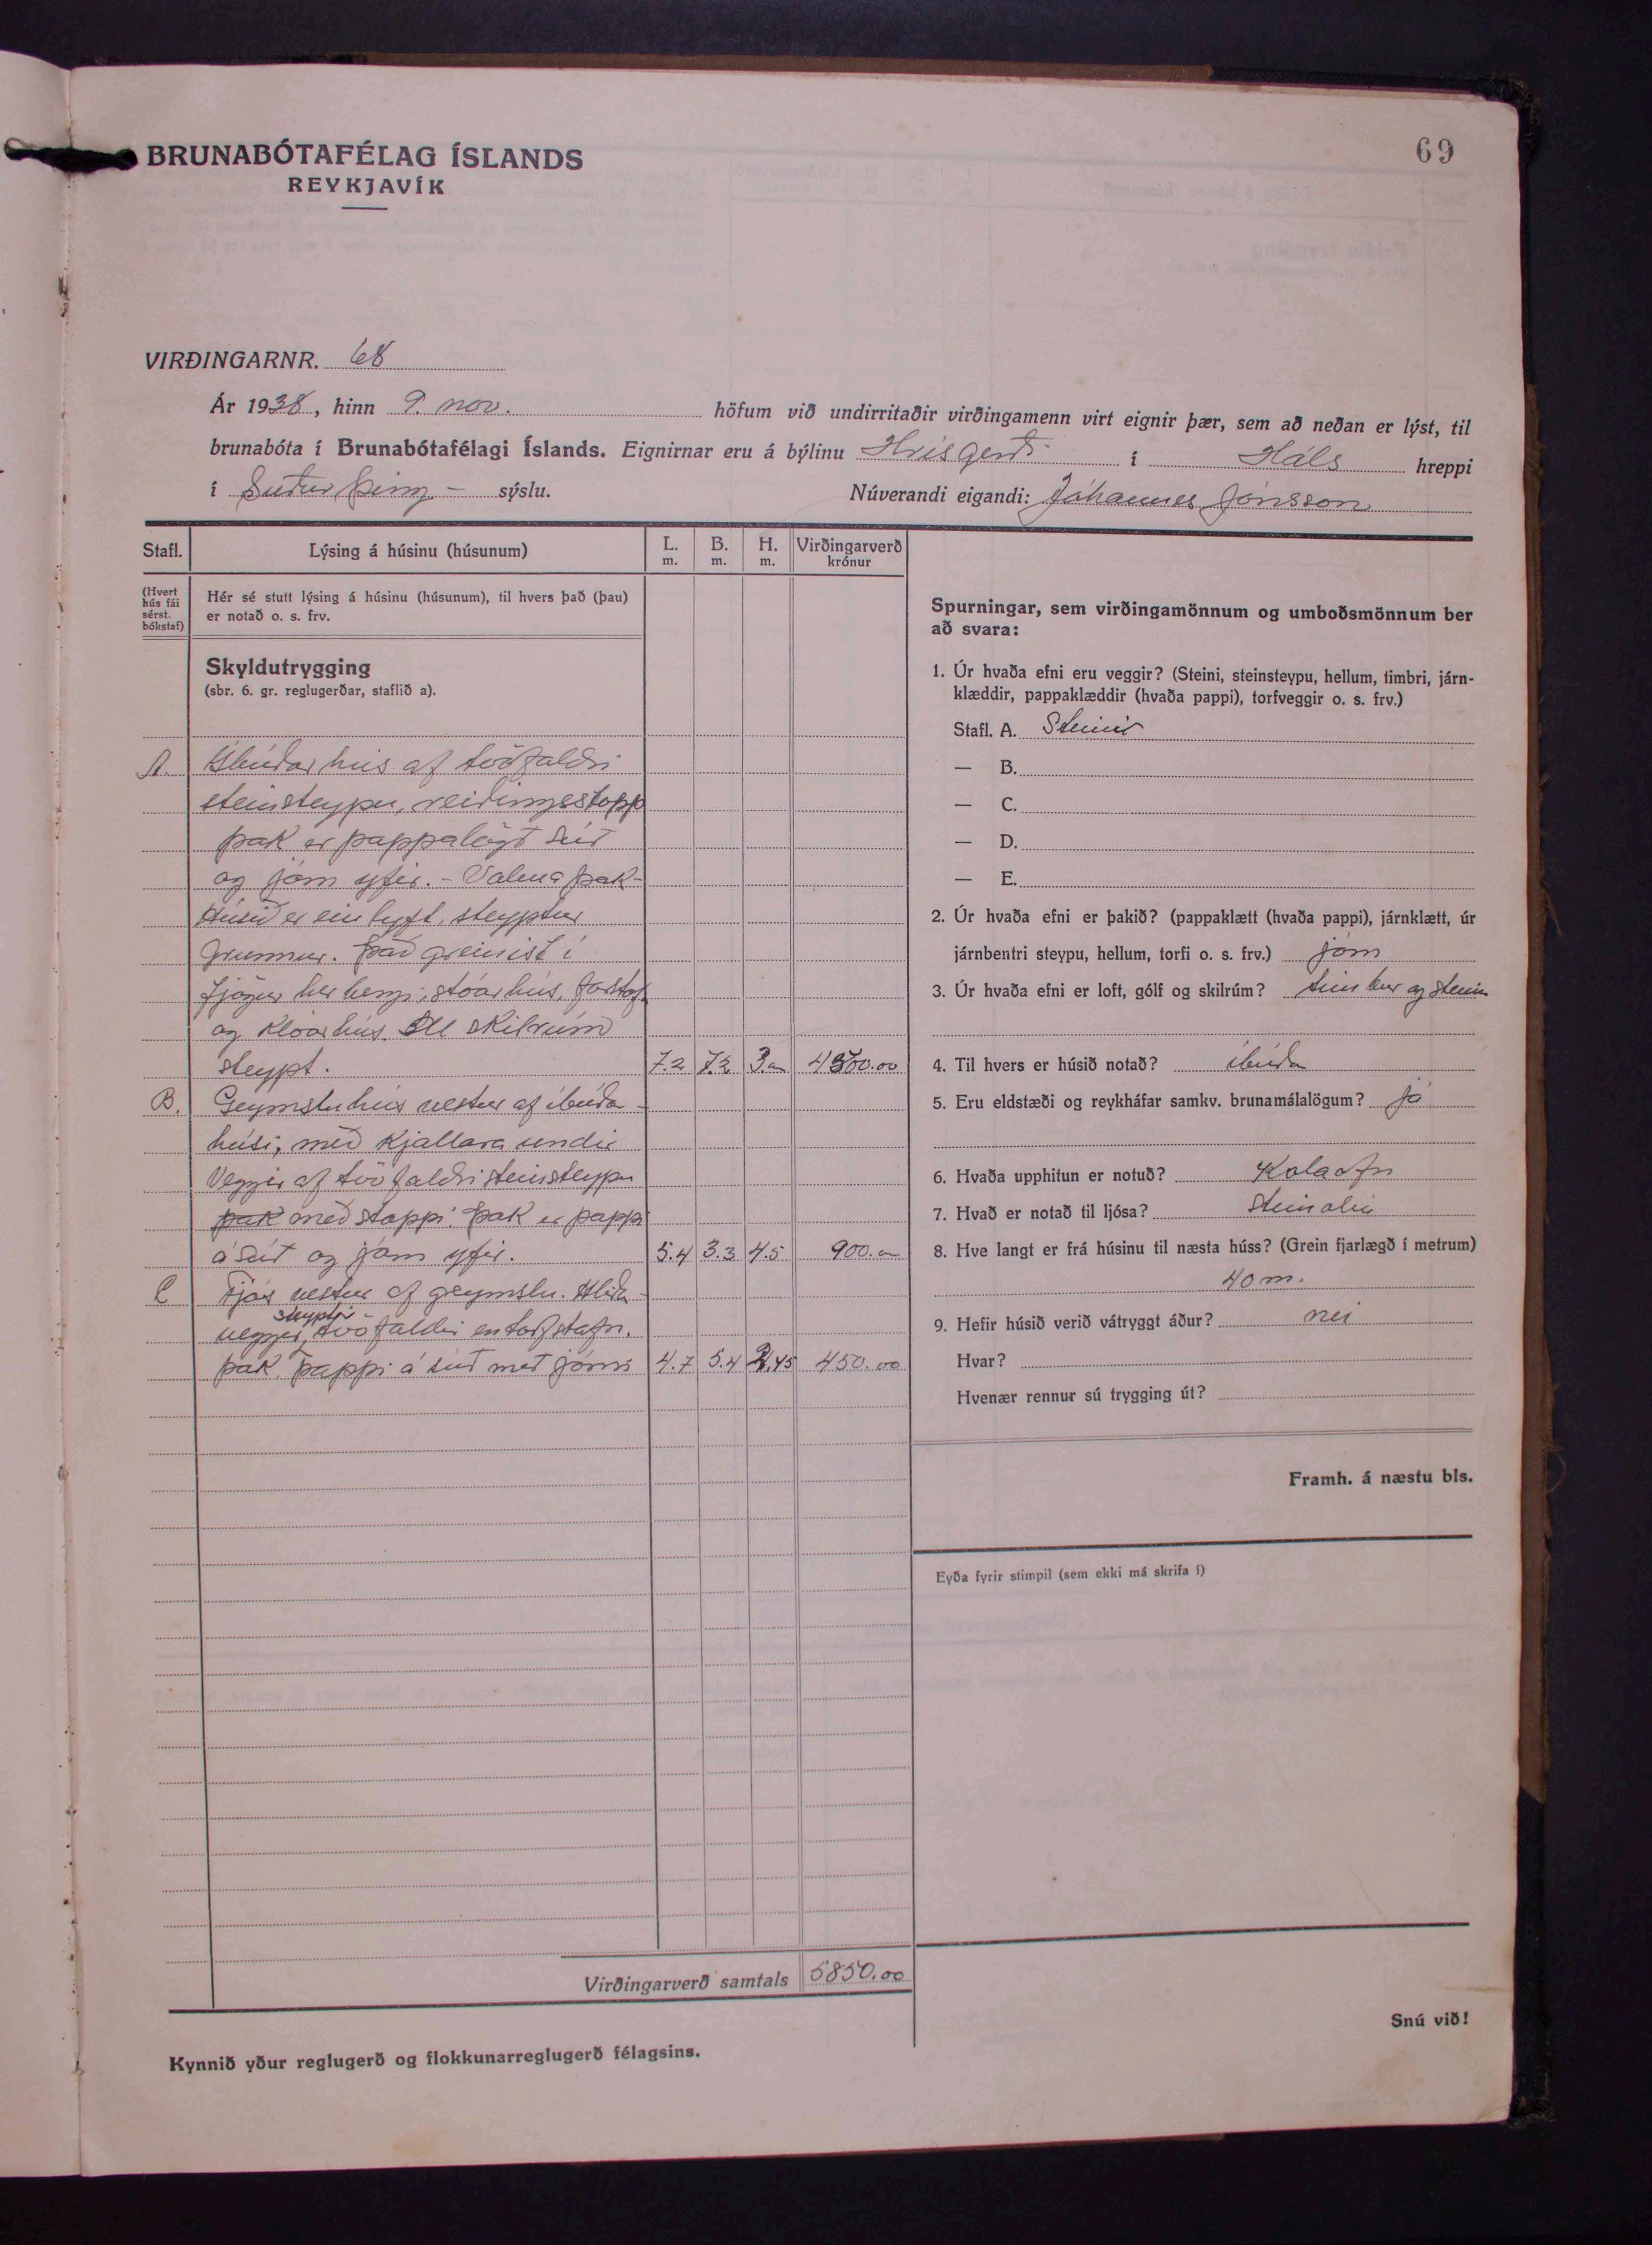 69
BRUNABÓTAFÉLAG ÍSLANDS
REYKJAVÍK
VIRÐINGARNR. 68
Ár 1938, hinn 9. nov. höfum við undirritaðir virðingamenn virt eignir þær, sem að neðan er lýst, til
brunabóta í Brunabótafélagi Íslands. Eignirnar eru á býlinu Hrísgerði í Háls hreppi
í Suður Þing- sýslu. Núverandi eigandi: Jóhannes Jónsson
Stafl. Lýsing á húsinu (húsunum) L. m. B. m. H. m. Virðingarverð krónur
(Hvert hús fái sérst. bókstaf)
Hér sé stutt lýsing á húsinu (húsunum), til hvers það (þau)
er notað o. s. frv.
Skyldutrygging
(sbr. 6. gr. reglugerðar, staflið a).
A. Íbúðarhús af tvöfaldri
steinsteypu, reiðingsstopp
þak er pappalögt súð
og járn yfir. - Valma þak-
Húsið er einlyft, steyptur
grunnur. Það greinist í
fjögur herbergi, stóarhús, forstofu
og klóarhús. Öll skilrúm
steypt. 7.2 7.2 3.00 4500.00
B. Geymsluhús vestur af íbúðar-
húsi; með kjallara undir
Veggir af tvöfaldri steinsteypu
þak með stoppi. Þak er pappi
á súð og járn yfir. 5.4 3.3 4.5 900.00
C Fjós vestur af geymslu. Hliðar-
veggir steyptir tvöfaldir en torfstafn.
þak, pappi á súð með járni 4.7 5.4 2.45 450.00
Virðingarverð samtals 5850.00
Kynnið yður reglugerð og flokkunarreglugerð félagsins.
Spurningar, sem virðingamönnum og umboðsmönnum ber
að svara:
1. Úr hvaða efni eru veggir? (Steini, steinsteypu, hellum, timbri, járn-
klæddir, pappaklæddir (hvaða pappi), torfveggir o. s. frv.)
Stafl. A. Steinir
— B.
— C.
— D.
— E.
2. Úr hvaða efni er þakið? (pappaklætt (hvaða pappi), járnklætt, úr
járnbentri steypu, hellum, torfi o. s. frv.) járn
3. Úr hvaða efni er loft, gólf og skilrúm? timbur og steinn
4. Til hvers er húsið notað? íbúða
5. Eru eldstæði og reykháfar samkv. brunamálalögum? já
6. Hvaða upphitun er notuð? Kolaofn
7. Hvað er notað til ljósa? Steinolía
8. Hve langt er frá húsinu til næsta húss? (Grein fjarlægð í metrum)
40 m.
9. Hefir húsið verið vátryggt áður? nei
Hvar?
Hvenær rennur sú trygging út?
Framh. á næstu bls.
Eyða fyrir stimpil (sem ekki má skrifa í)
Snú við!